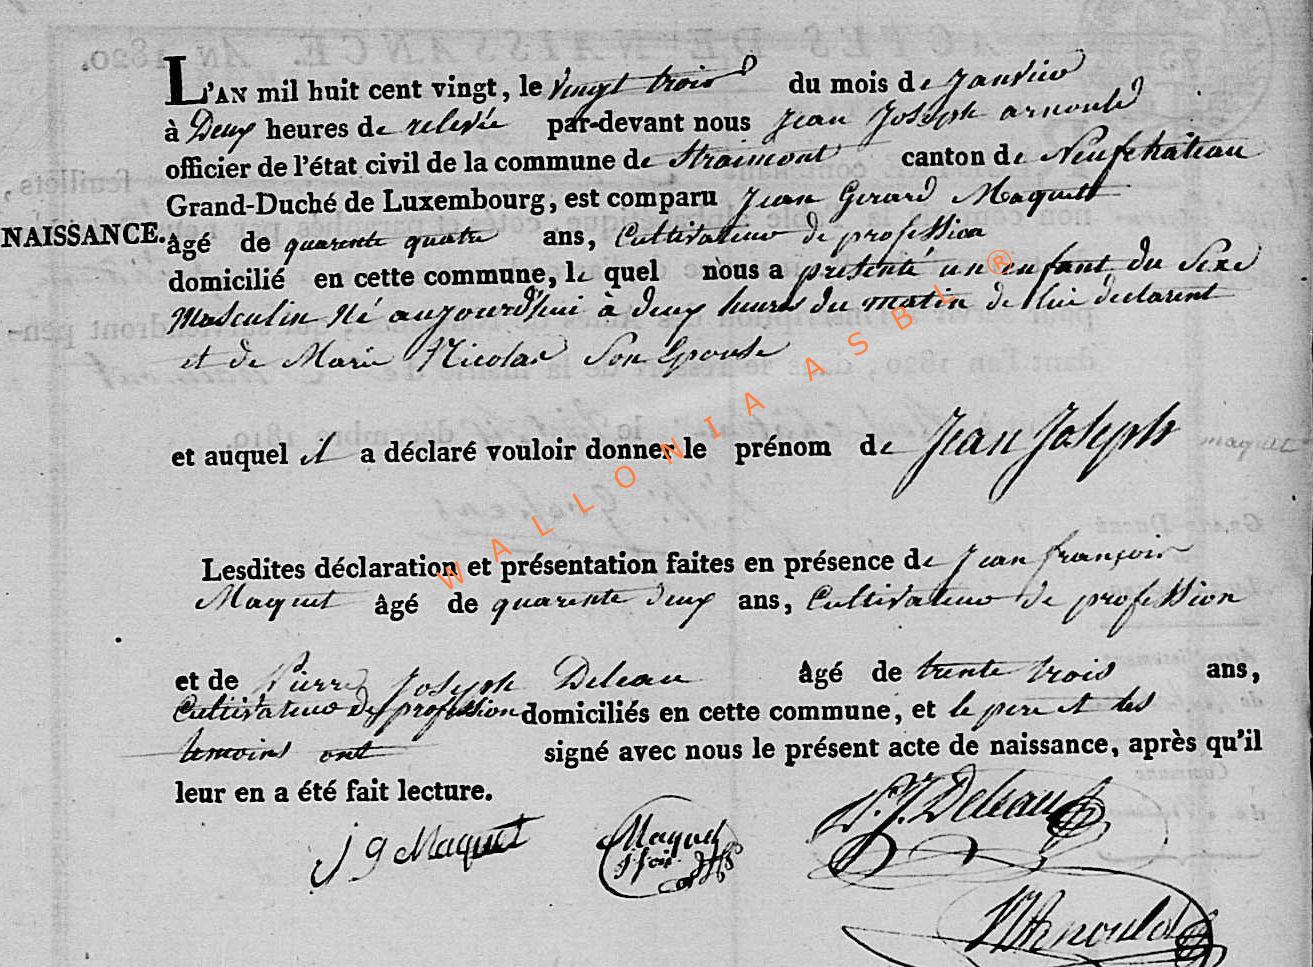 L'AN mil huit cent vingt, le vingt trois du mois de janvier
à Deux heures de relevée par-devant nous Jean Joseph arnould
officier de l'état civil de la commune de Straimont canton de Neufchâteau
Grand-Duché de Luxembourg, est comparu Jean Gerard Maquet
NAISSANCE. âgé de quarente quatre ans, Cultivateur de profession
domicilié en cette commune, le quel nous a presenté un enfant du Sexe
Masculin Né aujourd'hui à deux heures du matin de lui declarent
et de Marie Nicolas Son Epouse
et auquel il a déclaré vouloir donner le prénom de Jean Joseph
maquet
Lesdites déclaration et présentation faites en présence de Jean françois
Maquet âgé de quarente deux ans, Cultivateur de profession
et de Pierre Joseph Deleau âgé de trente trois ans,
Cultivateur de profession domiciliés en cette commune, et le pere et les
temoins ont signé avec nous le présent acte de naissance, après qu'il
leur en a été fait lecture.
J g Maquet Maquet P. J. Deleau
Arnould
WALLONIA ASBL ®